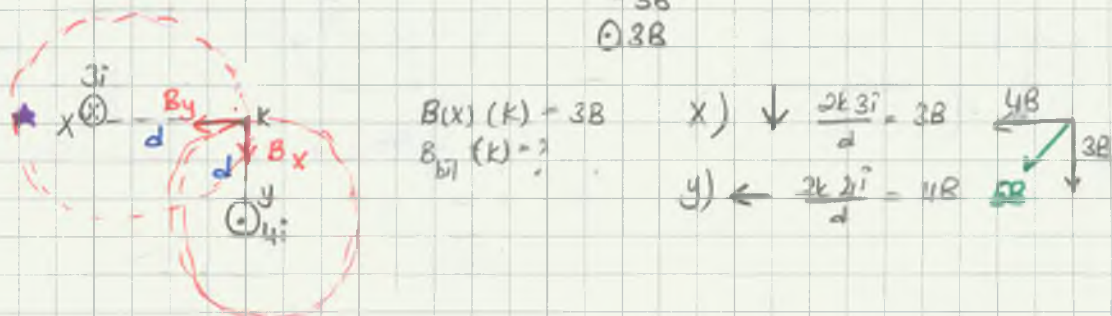 3B
⊙ 3B
3i
x ⊗ By K
d
d Bx
y
⊙ 4i
B(x) (K) = 3B
B_bil (K) = ?
x) ↓ 2k3i/d = 3B
y) ← 2k4i/d = 4B
4B
3B
5B